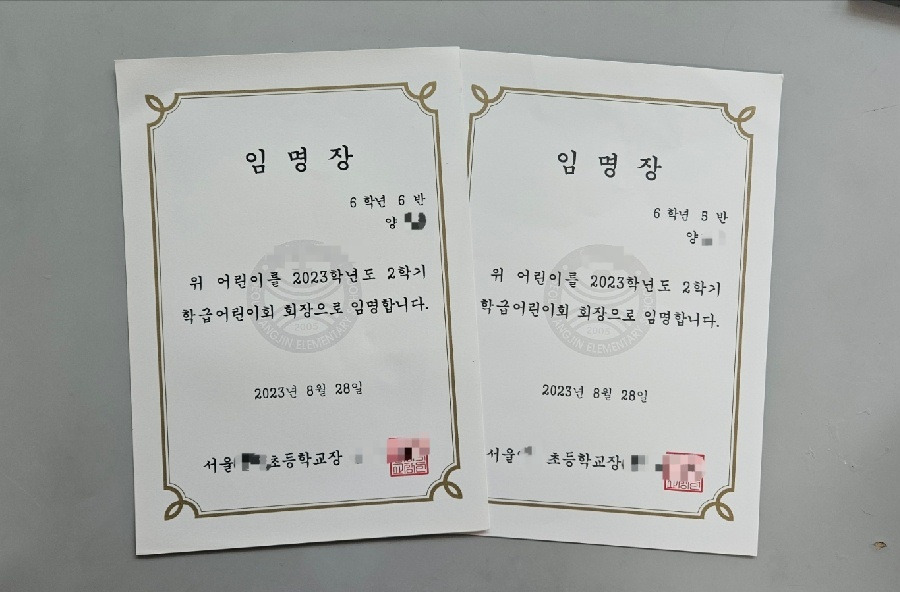 임 명 장
6 학년 6 반
양
위 어린이를 2023학년도 2학기
학급어린이회 회장으로 임명합니다.
2003
ELEMENTARY
2023년 8월 28일
서울 초등학교장
임 명 장
6 학년 5 반
양
위 어린이를 2023학년도 2학기
학급어린이회 회장으로 임명합니다.
ELEMENTARY
2023년 8월 28일
서울 초등학교장